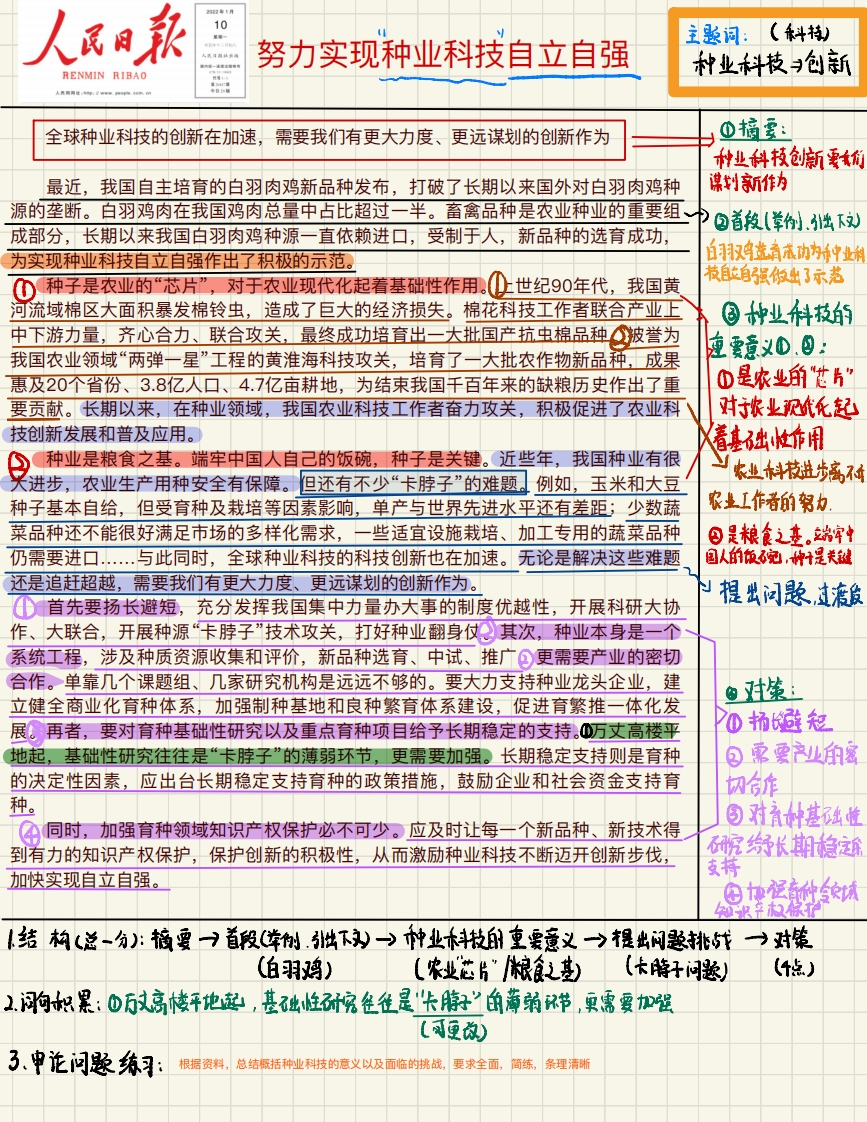 人民日报
RENMIN RIBAO
2022年1月
10
星期一
人民网网址:http://www.people.com.cn
努力实现“种业科技”自立自强
主题词：（科技）
种业科技→创新
全球种业科技的创新在加速，需要我们有更大力度、更远谋划的创新作为
最近，我国自主培育的白羽肉鸡新品种发布，打破了长期以来国外对白羽肉鸡种
源的垄断。白羽鸡肉在我国鸡肉总量中占比超过一半。畜禽品种是农业种业的重要组
成部分，长期以来我国白羽肉鸡种源一直依赖进口，受制于人，新品种的选育成功，
为实现种业科技自立自强作出了积极的示范。
① 种子是农业的“芯片”，对于农业现代化起着基础性作用。①上世纪90年代，我国黄
河流域棉区大面积暴发棉铃虫，造成了巨大的经济损失。棉花科技工作者联合产业上
中下游力量，齐心合力、联合攻关，最终成功培育出一大批国产抗虫棉品种②被誉为
我国农业领域“两弹一星”工程的黄淮海科技攻关，培育了一大批农作物新品种，成果
惠及20个省份、3.8亿人口、4.7亿亩耕地，为结束我国千百年来的缺粮历史作出了重
要贡献。长期以来，在种业领域，我国农业科技工作者奋力攻关，积极促进了农业科
技创新发展和普及应用。
② 种业是粮食之基。端牢中国人自己的饭碗，种子是关键。近些年，我国种业有很
大进步，农业生产用种安全有保障。但还有不少“卡脖子”的难题。例如，玉米和大豆
种子基本自给，但受育种及栽培等因素影响，单产与世界先进水平还有差距；少数蔬
菜品种还不能很好满足市场的多样化需求，一些适宜设施栽培、加工专用的蔬菜品种
仍需要进口……与此同时，全球种业科技的科技创新也在加速。无论是解决这些难题
还是追赶超越，需要我们有更大力度、更远谋划的创新作为。
① 首先要扬长避短，充分发挥我国集中力量办大事的制度优越性，开展科研大协
作、大联合，开展种源“卡脖子”技术攻关，打好种业翻身仗②其次，种业本身是一个
系统工程，涉及种质资源收集和评价，新品种选育、中试、推广②更需要产业的密切
合作。单靠几个课题组、几家研究机构是远远不够的。要大力支持种业龙头企业，建
立健全商业化育种体系，加强制种基地和良种繁育体系建设，促进育繁推一体化发
展③再者，要对育种基础性研究以及重点育种项目给予长期稳定的支持。①万丈高楼平
地起，基础性研究往往是“卡脖子”的薄弱环节，更需要加强。长期稳定支持则是育种
的决定性因素，应出台长期稳定支持育种的政策措施，鼓励企业和社会资金支持育
种。
④ 同时，加强育种领域知识产权保护必不可少。应及时让每一个新品种、新技术得
到有力的知识产权保护，保护创新的积极性，从而激励种业科技不断迈开创新步伐，
加快实现自立自强。
①摘要：
种业科技创新要我们
谋划新作为
②首段（举例、引出下文）
白羽鸡选育成功为种业科
技自立自强做出了示范
③种业科技的
重要意义①、②：
①是农业的“芯片”
对于农业现代化起
着基础性作用
农业科技进步离不开
农业工作者的努力
②是粮食之基。端牢中
国人的饭碗，种子是关键
提出问题，过渡段
④对策：
①扬长避短
②需要产业的密
切合作
③对育种基础性
研究给予长期稳定
支持
④加强育种领域
知识产权保护
1.结构（总一分）：摘要→首段（举例、引出下文）→种业科技的重要意义→提出问题挑战→对策
（白羽鸡） （农业“芯片”/粮食之基） （卡脖子问题） （4点）
2.词句积累：①万丈高楼平地起，基础性研究往往是“卡脖子”的薄弱环节，更需要加强
（可更改）
3.申论问题练习：根据资料，总结概括种业科技的意义以及面临的挑战，要求全面，简练，条理清晰